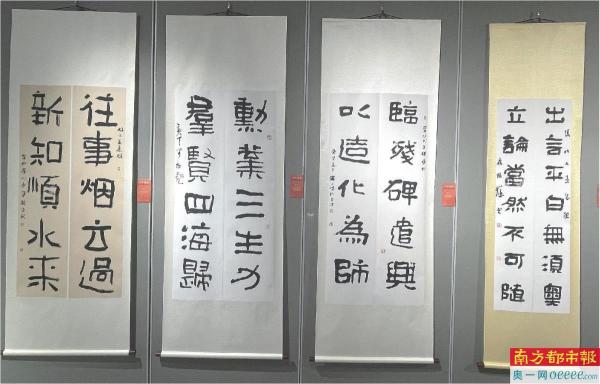 往事烟云過
新知順水来
勳業三生力
羣賢四海歸
臨殘碑遣興
以造化為師
出言平白無須奧
立論當然不可随
南方都市報
奥一网 oeeee.com